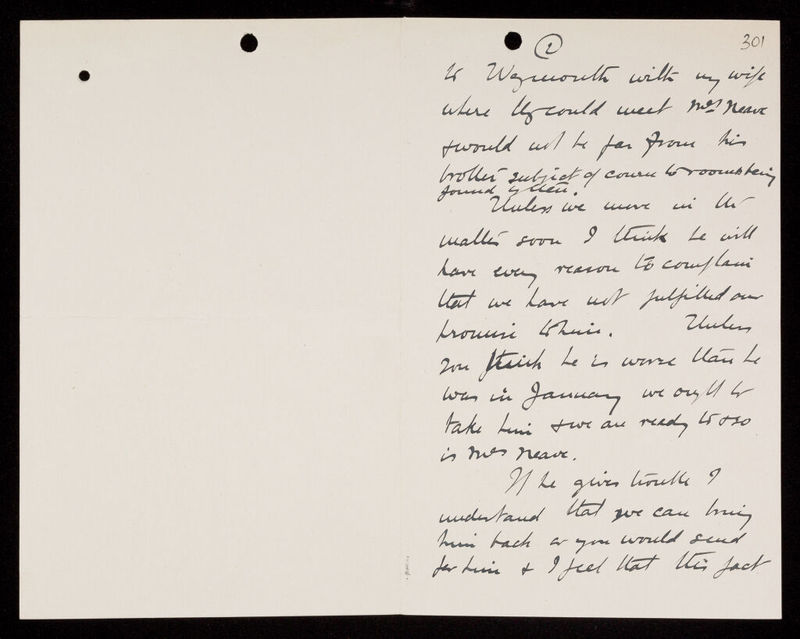 ② 301
to Weymouth with my wife
where they could meet Mrs Neave
& would not be far from his
brother subject of course to rooms being
found by then.
Unless we move in the
matter soon I think he will
have every reason to complain
that we have not fulfilled our
promise to him. Unless
you think he is worse than he
was in January we ought to
take him & we are ready to & so
is Mrs Neave.
If he gives trouble I
understand that we can bring
him back or you would send
for him & I feel that this fact